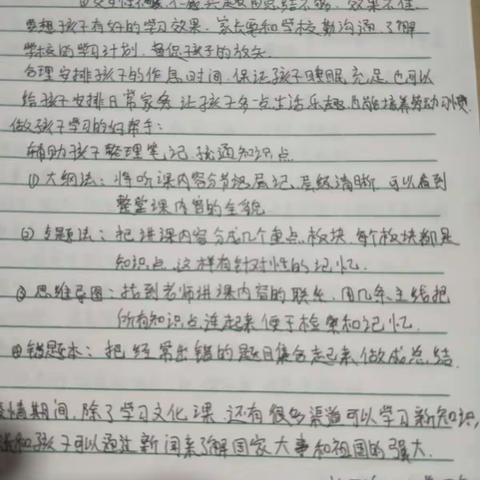 要想孩子有好的学习效果,家长要和学校勤沟通,了解
学校的学习计划,督促孩子的放矢.
合理安排孩子的作息时间,保证孩子睡眠充足,也可以
给孩子安排日常家务,让孩子多点生活乐趣,且能培养劳动习惯.
做孩子学习的好帮手:
辅助孩子整理笔记,梳通知识点.
(1)大纲法:将听课内容分节逐层记,层级清晰,可以看到
整堂课内容的全貌.
(2)专题法:把讲课内容分成几个重点板块,每个板块都是
知识点,这样有针对性的记忆.
③思维导图:找到老师讲课内容的联系,用几条主线把
所有知识点连起来,便于检索和记忆.
④错题本:把经常出错的题目集合起来,做成总结.
情期间,除了学习文化课,还有很多渠道可以学习新知识,
和孩子可以通过新闻来了解国家大事和祖国的强大.